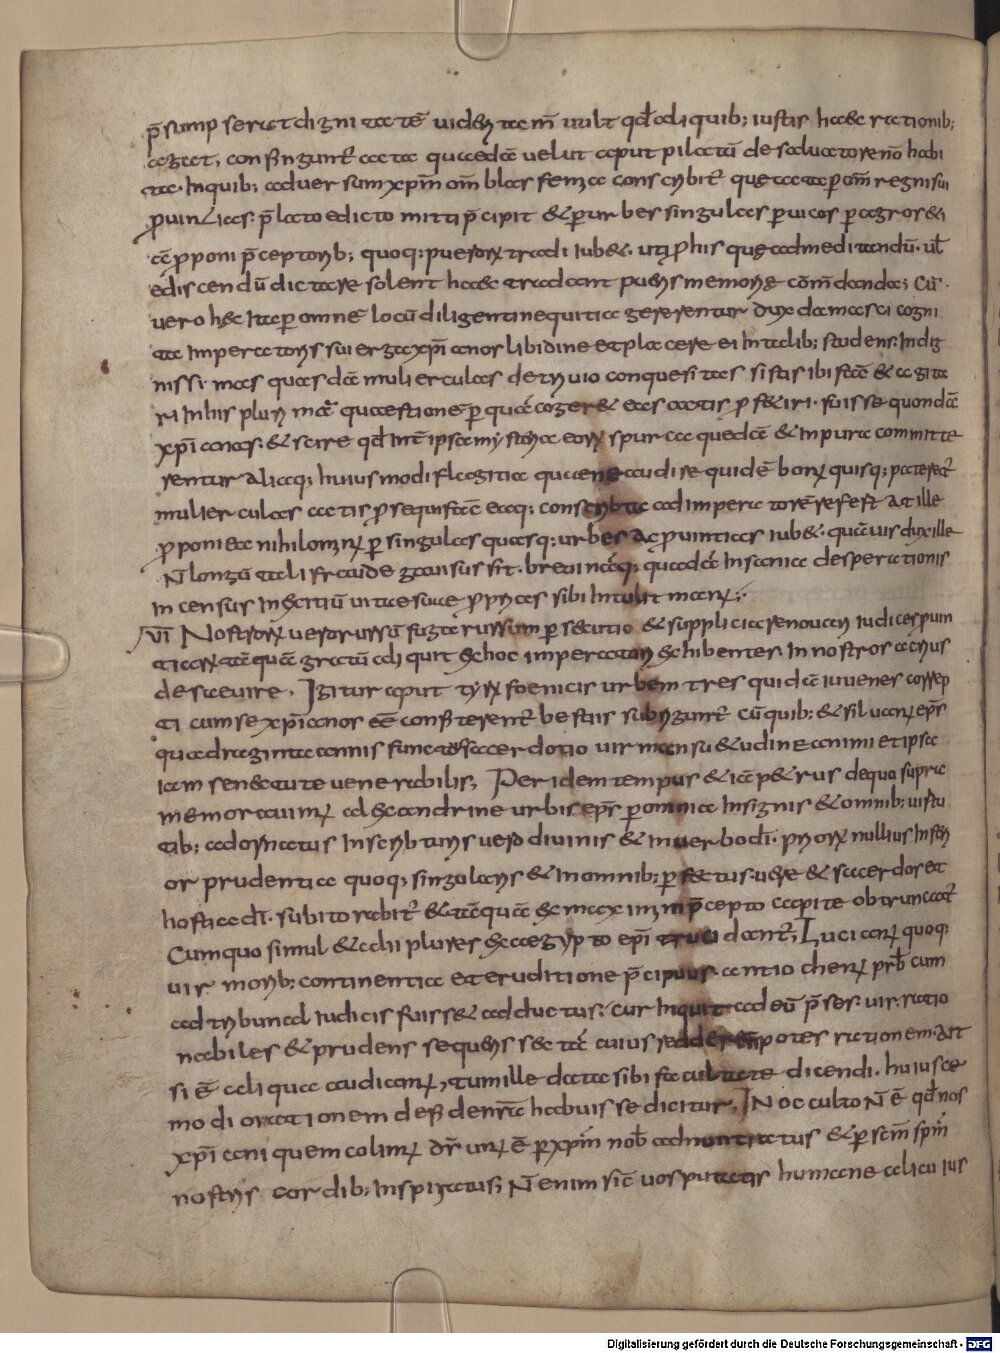 p̄sumpserat dignitatē uidentam̄ uult qd̄ aliquib; iustis haec rationib;
agat, confinguntr̄ acta quaedā uelut aput pilatū de saluatore nō habi
ta. Inquib; aduersum xp̄m om̄ blasfemia conscribitr̄ quae acta p̄ om̄ regni sui
prouincias. p̄lato edicto mitti p̄cipit & p̄ urbes singulas p̄ uicos p̄ agros &i
ā proponi p̄ceptorib; quoq; puerorꝝ tradi iub&. uti pro his quae admeditandū. ul̄
ediscendū dictare solent haec tradant pueris memoriae cōmdanda; Cū
uero haec ita p̄ omnē locū diligenti nequitia gererentur dux damasci cogni
ta imperatoris sui erga xp̄ianos libidine et placere ei in talib; studens. Indig
nissimas quasdā mulierculas de triuio conquesitas sistas ibi facē & agita
ri inhis plurimā quaestionē p̄ quā coger& eas actis prof&iri. fuisse quondā
xp̄ianas. & scire qd̄ inter ipsa mysteria eorꝝ spurca quedā & inpura committe
rentur aliaq; huiusmodi flagitia quae ne audire quidē bonorꝝ quisq; pateretr̄
mulierculas actis prosequi facē eaq; conscribta ad imperatorē refert at ille
proponi ea nihilominꝰ p̄ singulas quasq; urbes ac prouintias iub&. quāuis dux ille
N̄ longū tali fraude gauisus sit. breui nāq; quadā insania desperationis
incensus insanū uitae suae proprias sibi intulit manꝰ;
VI Nostrorꝝ uero rursū fugae rursum p̄secutio & supplicia renouanr̄ iudices puin
tiarꝝ tāquā gratū aliquit & hoc imperatori exhibentes in nostros acrius
desaeuire. Igitur aput tyrꝝ foenicis urbem tres quidā iuuenes correp
ti cum se xp̄ianos eē confiterentr̄ bestiis subriguntr̄ cū quib; & siluanꝰ ep̄s
quadraginta annis functus sacerdotio uir mansu&udine animi et ipsa
iam senectute uenerabilis; Per idem tempus & iā p&rus de quo supra
memorauimꝰ alexandrinae urbis ep̄s p̄ omnia insignis & omnib; uirtu
tib; adornatus in scribturis uero diuinis & in uerbo dī. priorꝝ nullius inferi
or prudentia quoq; singularis & in omnib; p̄fectus. uere & sacerdos et
hostia dī. subito rabitr̄ & tāquā ex maximini p̄cepto capite obtruncatr̄
Cum quo simul & alii plures ex aegypto ep̄i trucidantr̄; Lucianꝰ quoq;
uir morib; continentia et eruditione p̄cipuus. antiochenꝰ prb̄ cum
ad tribunal iudicis fuiss& adductus; Cur inquit ad eū p̄ses. uir ratio
nabiles & prudens sequeris sectā cuius reddere n̄ potes rationem. aut
si ē aliqua audiamꝰ, tum ille data sibi facultate dicendi. huiusce
modi orationem de fide nrā habuisse dicitur. IN occulto N̄ ē qd̄ nos
xp̄iani quem colimꝰ dr̄ unꝰ ē p̄ xpm̄ nob̄ adnuntiatus & p̄ scm̄ spm̄
nostris cordib; inspiratus; N̄ enim sic̄ uos putatis humane alicuius
Digitalisierung gefördert durch die Deutsche Forschungsgemeinschaft - DFG